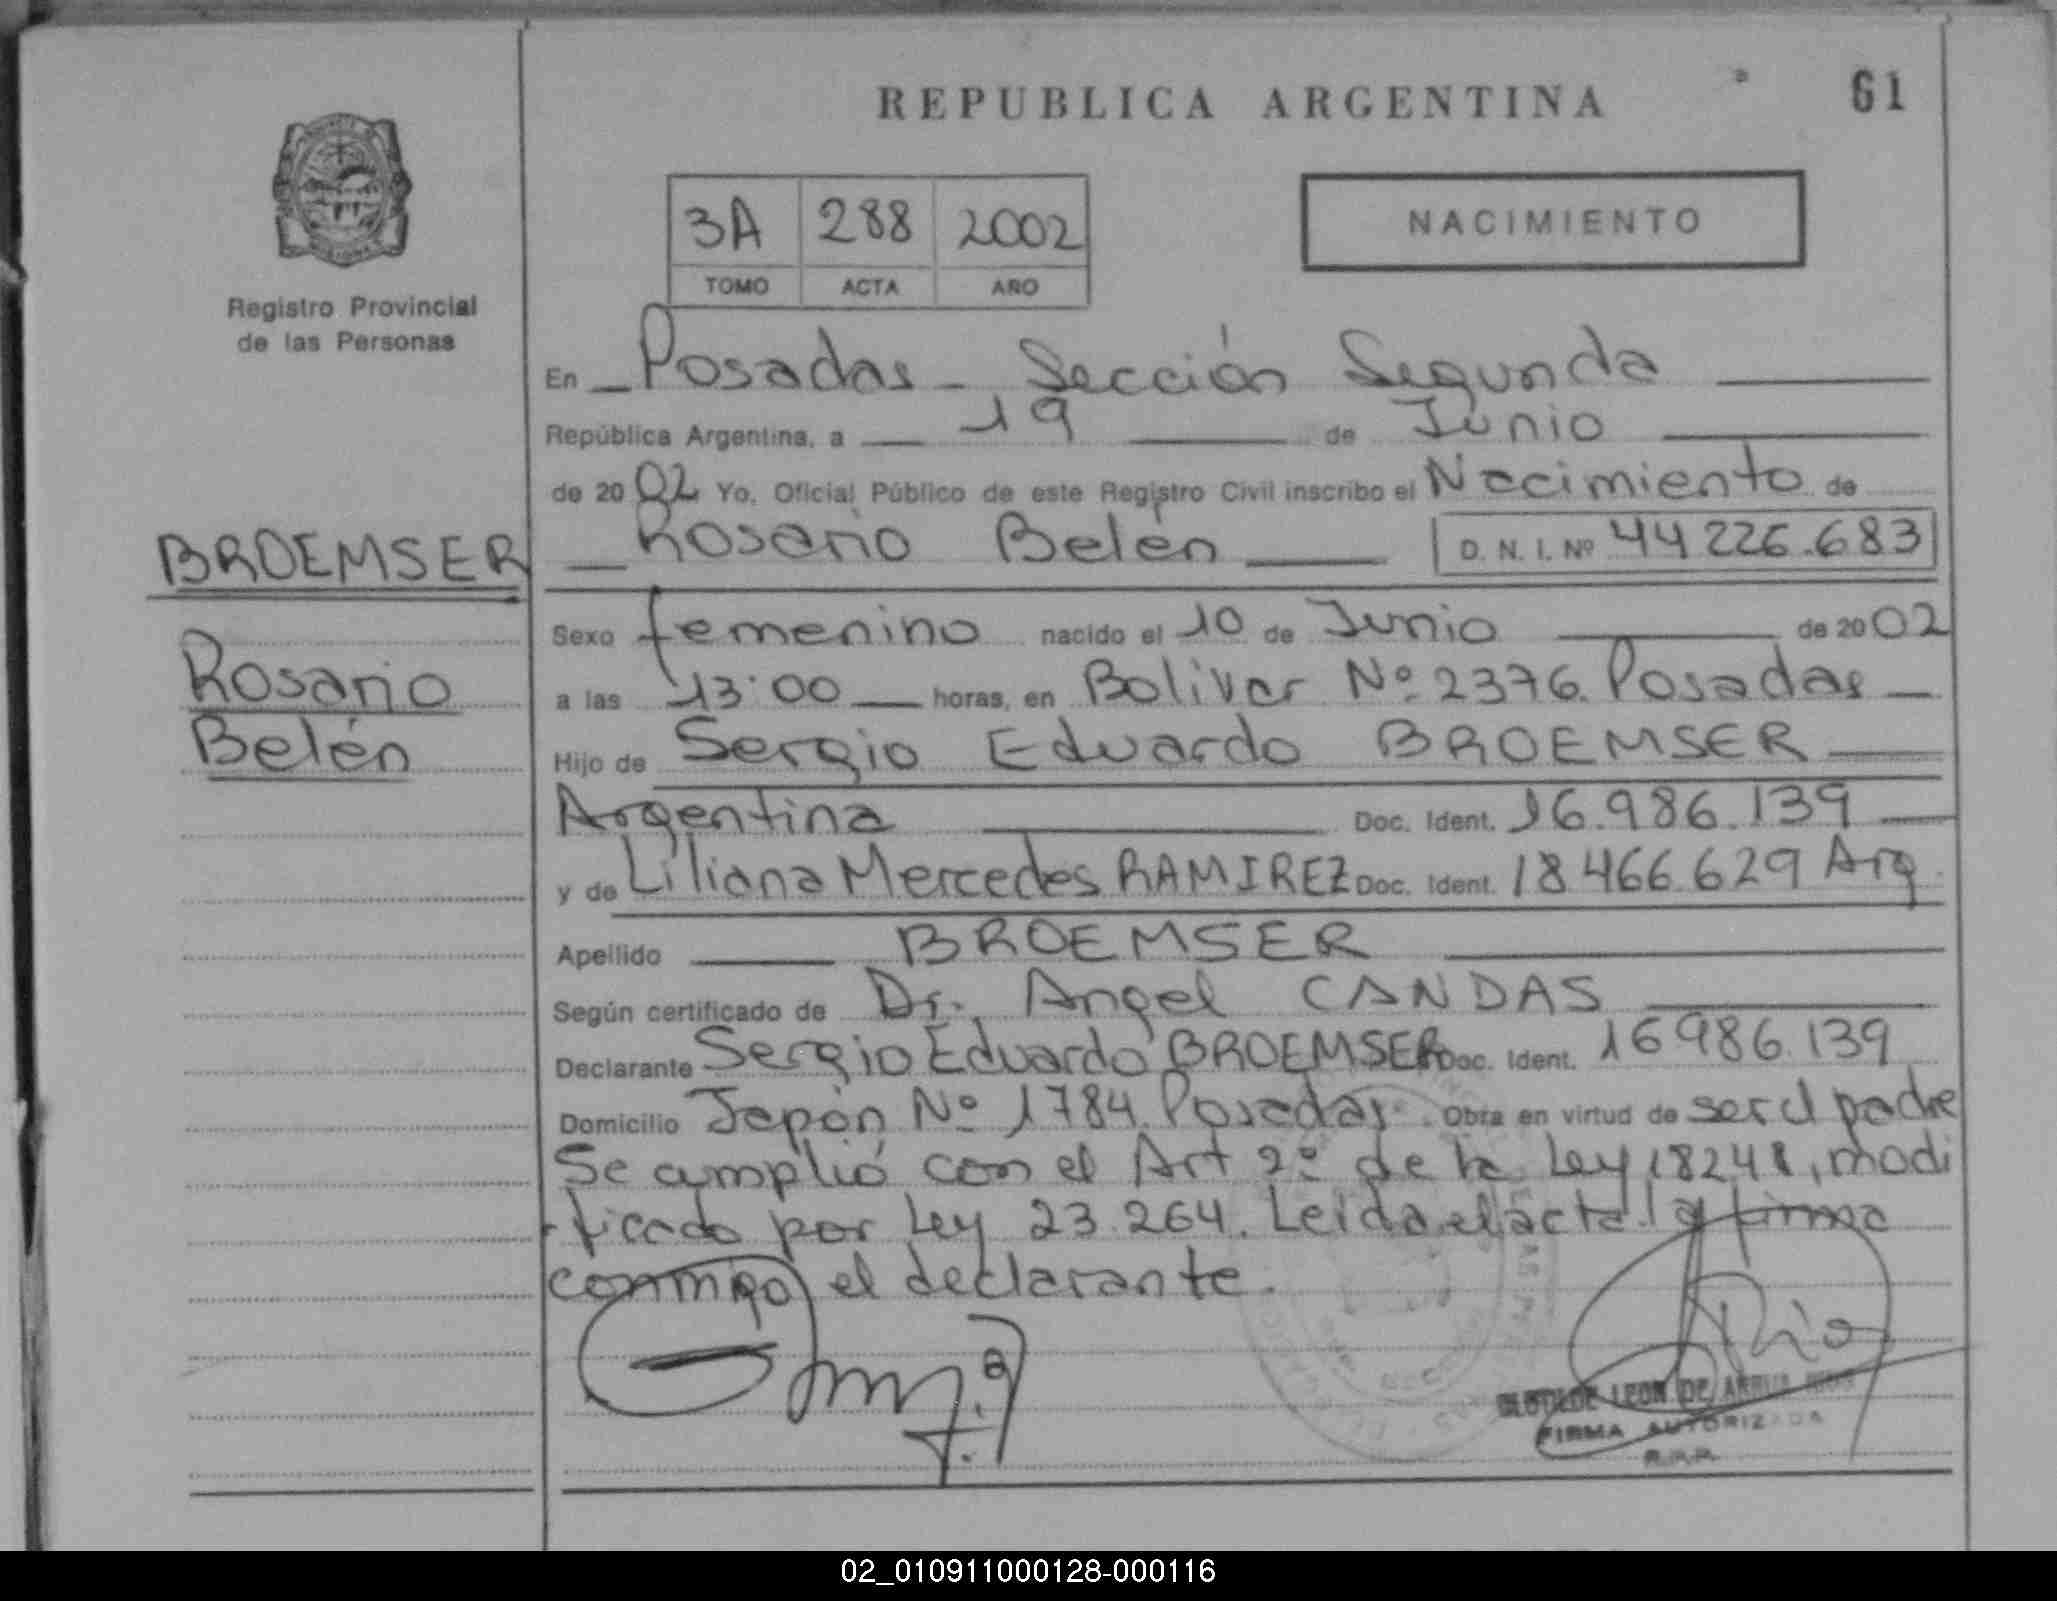 REPUBLICA ARGENTINA
61
3A 288 2002
TOMO ACTA AÑO
NACIMIENTO
Registro Provincial
de las Personas
En Posadas - Sección Segunda
República Argentina, a 19 de Junio
de 2002 Yo, Oficial Público de este Registro Civil inscribo el Nacimiento de
Rosario Belén D. N. I. Nº 44 226.683
BROEMSER
Rosario
Belén
Sexo femenino nacido el 10 de Junio de 2002
a las 13:00 horas, en Bolivar Nº 2376. Posadas
Hijo de Sergio Eduardo BROEMSER
Argentina Doc. Ident. 16.986.139
y de Liliana Mercedes RAMIREZ Doc. Ident. 18.466.629 Arg.
Apellido BROEMSER
Según certificado de Dr. Angel CANDAS
Declarante Sergio Eduardo BROEMSER Doc. Ident. 16986.139
Domicilio Japón Nº 1784. Posadas. Obra en virtud de ser el padre
Se cumplió con el Art 2º de la Ley 18248, modi
ficado por Ley 23.264. Leida el acta la firma
conmigo el declarante.
CLOTILDE LEON DE
FIRMA AUTORIZADA
R.P.P.
02_010911000128-000116